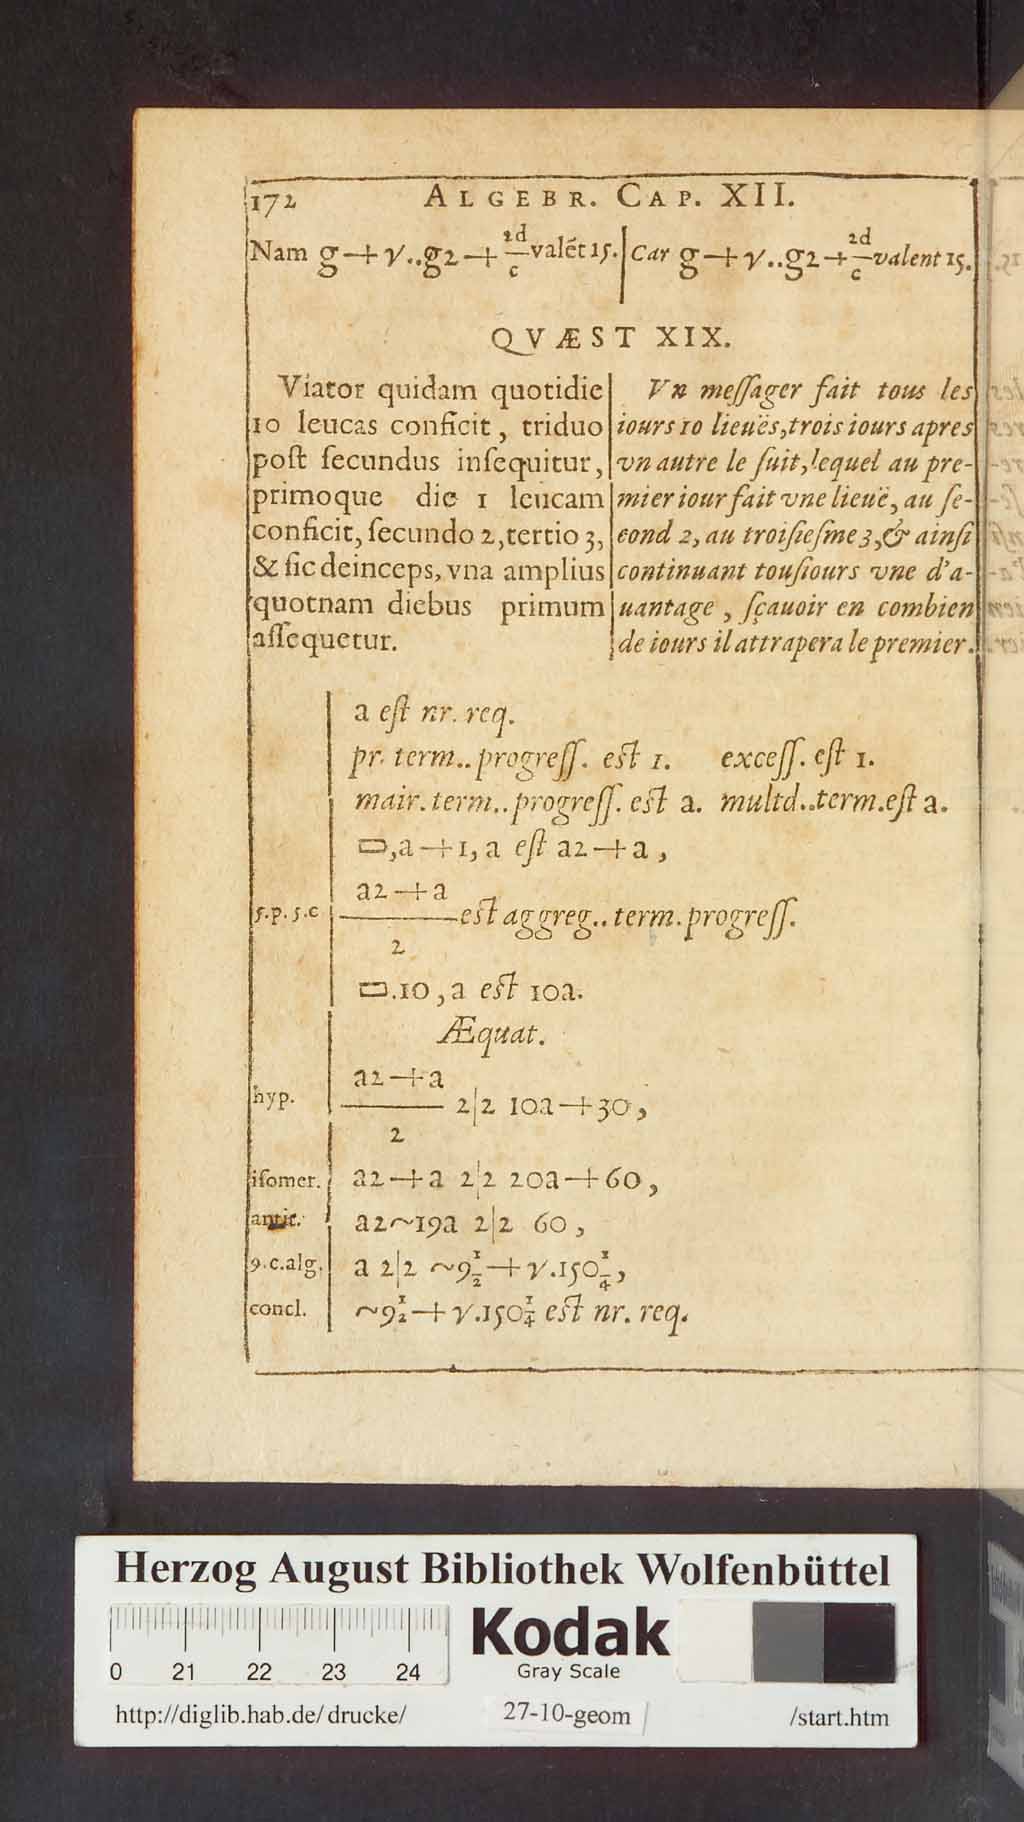 172 ALGEBR. CAP. XII.
Nam g+√..g2+2d/c valẽt 15.
Car g+√..g2+2d/c valent 15.
QVÆST XIX.
Viator quidam quotidie
10 leucas conficit, triduo
poſt ſecundus inſequitur,
primoque die 1 leucam
conficit, ſecundo 2, tertio 3,
& ſic deinceps, vna amplius
quotnam diebus primum
aſſequetur.
Vn meſſager fait tous les
iours 10 lieuës, trois iours apres
vn autre le ſuit, lequel au pre-
mier iour fait vne lieuë, au ſe-
cond 2, au troiſieſme 3, & ainſi
continuant touſiours vne d'a-
uantage, ſçauoir en combien
de iours il attrapera le premier.
a eſt nr. req.
pr. term.. progreſſ. eſt 1. exceſſ. eſt 1.
mair. term.. progreſſ. eſt a. multd..term. eſt a.
▭, a+1, a eſt a2+a,
a2+a
5.p.5.c ——— eſt aggreg.. term. progreſſ.
2
▭.10, a eſt 10a.
Æquat.
a2+a
hyp. ——— 2|2 10a+30,
2
iſomer. a2+a 2|2 20a+60,
antit. a2~19a 2|2 60,
9.c.alg. a 2|2 ~9½+√.150¼,
concl. ~9½+√.150¼ eſt nr. req.
Herzog August Bibliothek Wolfenbüttel
0 21 22 23 24
Kodak
Gray Scale
http://diglib.hab.de/drucke/ 27-10-geom /start.htm